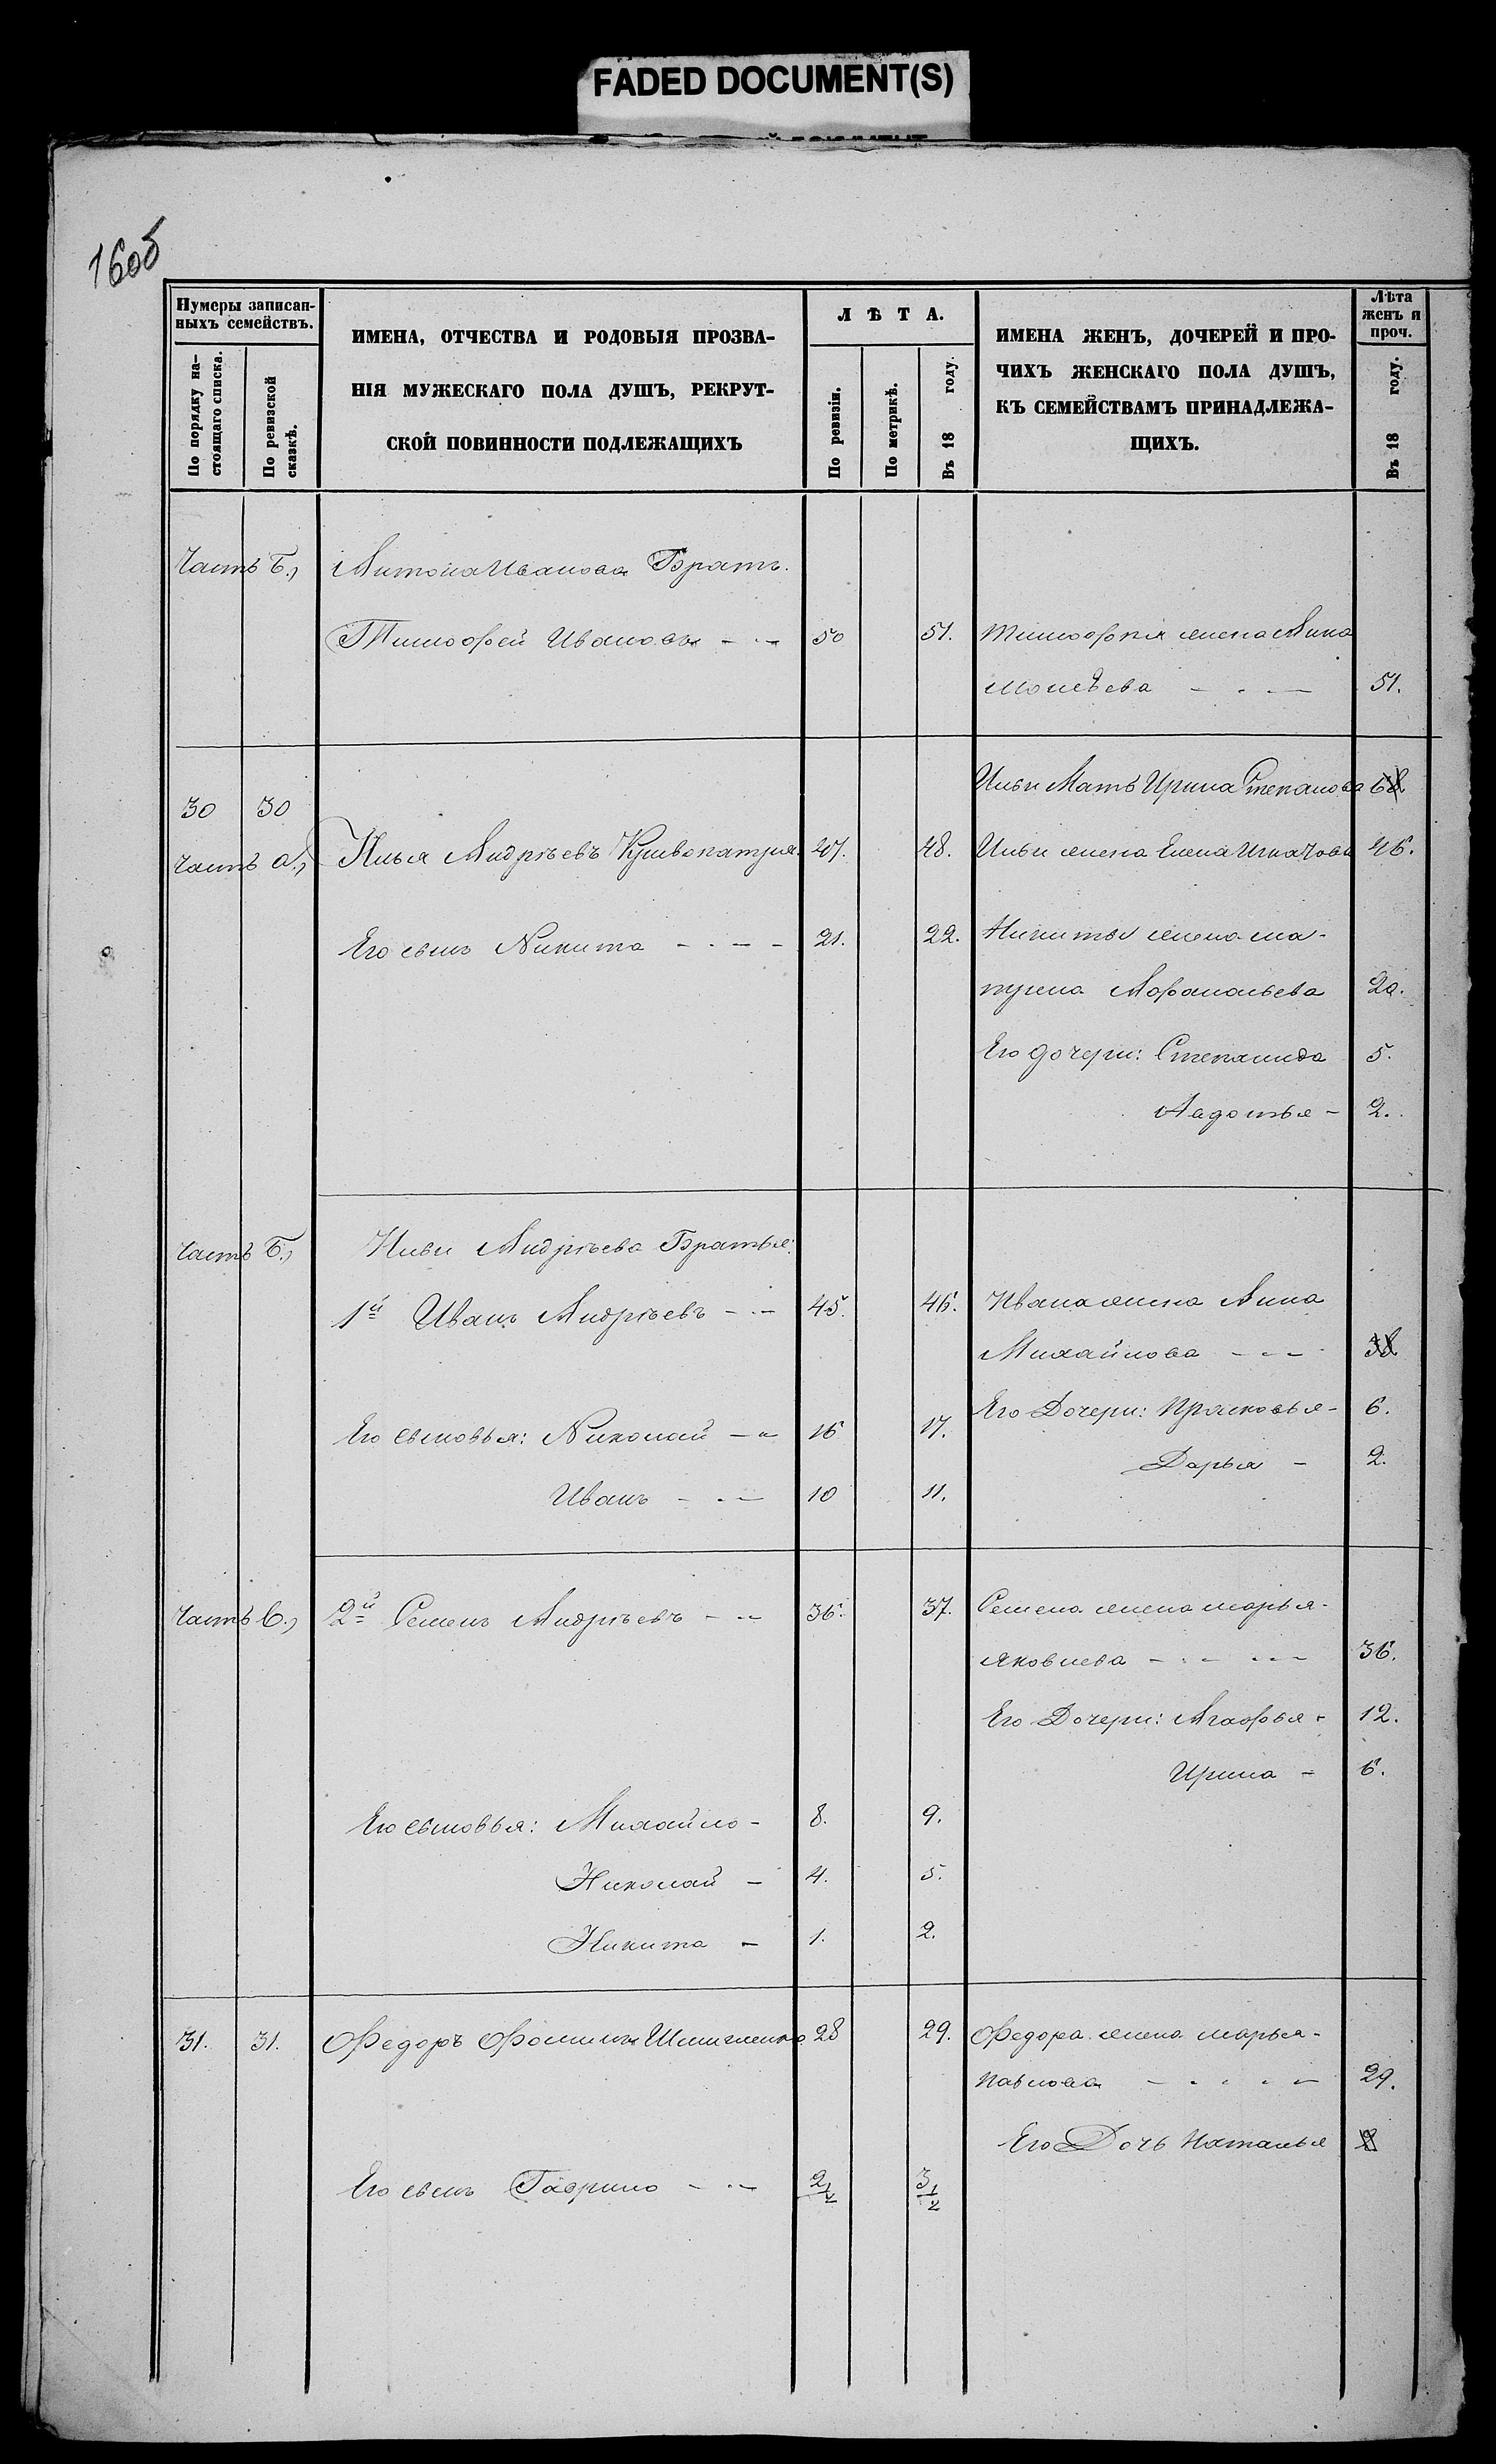 FADED DOCUMENT(S)
160б
Нумеры записан-
ныхъ семействъ.
По порядку на-
стоящаго списка.
По ревизской
сказкѣ.
ИМЕНА, ОТЧЕСТВА И РОДОВЫЯ ПРОЗВА-
НІЯ МУЖЕСКАГО ПОЛА ДУШЪ, РЕКРУТ-
СКОЙ ПОВИННОСТИ ПОДЛЕЖАЩИХЪ
ЛѢТА.
По ревизіи.
По метрикѣ.
Въ 18 году.
ИМЕНА ЖЕНЪ, ДОЧЕРЕЙ И ПРО-
ЧИХЪ ЖЕНСКАГО ПОЛА ДУШЪ,
КЪ СЕМЕЙСТВАМЪ ПРИНАДЛЕЖА-
ЩИХЪ.
Лѣта
женъ и
проч.
Въ 18 году.
Часть Б.) Антона Иванова Братъ.
Тимофей Ивановъ - - - 50 51. Тимофѣя жена Анна
Моисѣева - - - 51.
Ильи Мать Ирина Степанова
30 30
Часть а.) Илья Андрѣевъ 47. 48. Ильи жена Елена Игнатова 46.
Его сынъ Никита - - - - 21. 22. Никиты жена Ма-
трена Афанасьева 20.
Его дочери: Степанида 5.
Авдотья - 2.
Часть Б.) Ильи Андрѣева Братья:
1й Иванъ Андрѣевъ - - - 45. 46. Ивана жена Анна
Михайлова - - -
Его сыновья: Николай - - 16 17. Его Дочери: Прасковья - 6.
Дарья - 2.
Иванъ - - - 10 11.
Часть В.) 2й Семенъ Андрѣевъ - - 36. 37. Семена жена Марья
Яковлева - - - - - - 36.
Его Дочери: Агафья - 12.
Ирина - 6.
Его сыновья: Михайло - 8. 9.
Николай - 4. 5.
Никита - 1. 2.
31. 31. Федоръ Фоминъ 28 29. Федора жена Марья
Павлова - - - - - 29.
Его Дочь Наталья
Его сынъ Гаврило - - - 2 1/2 3 1/2